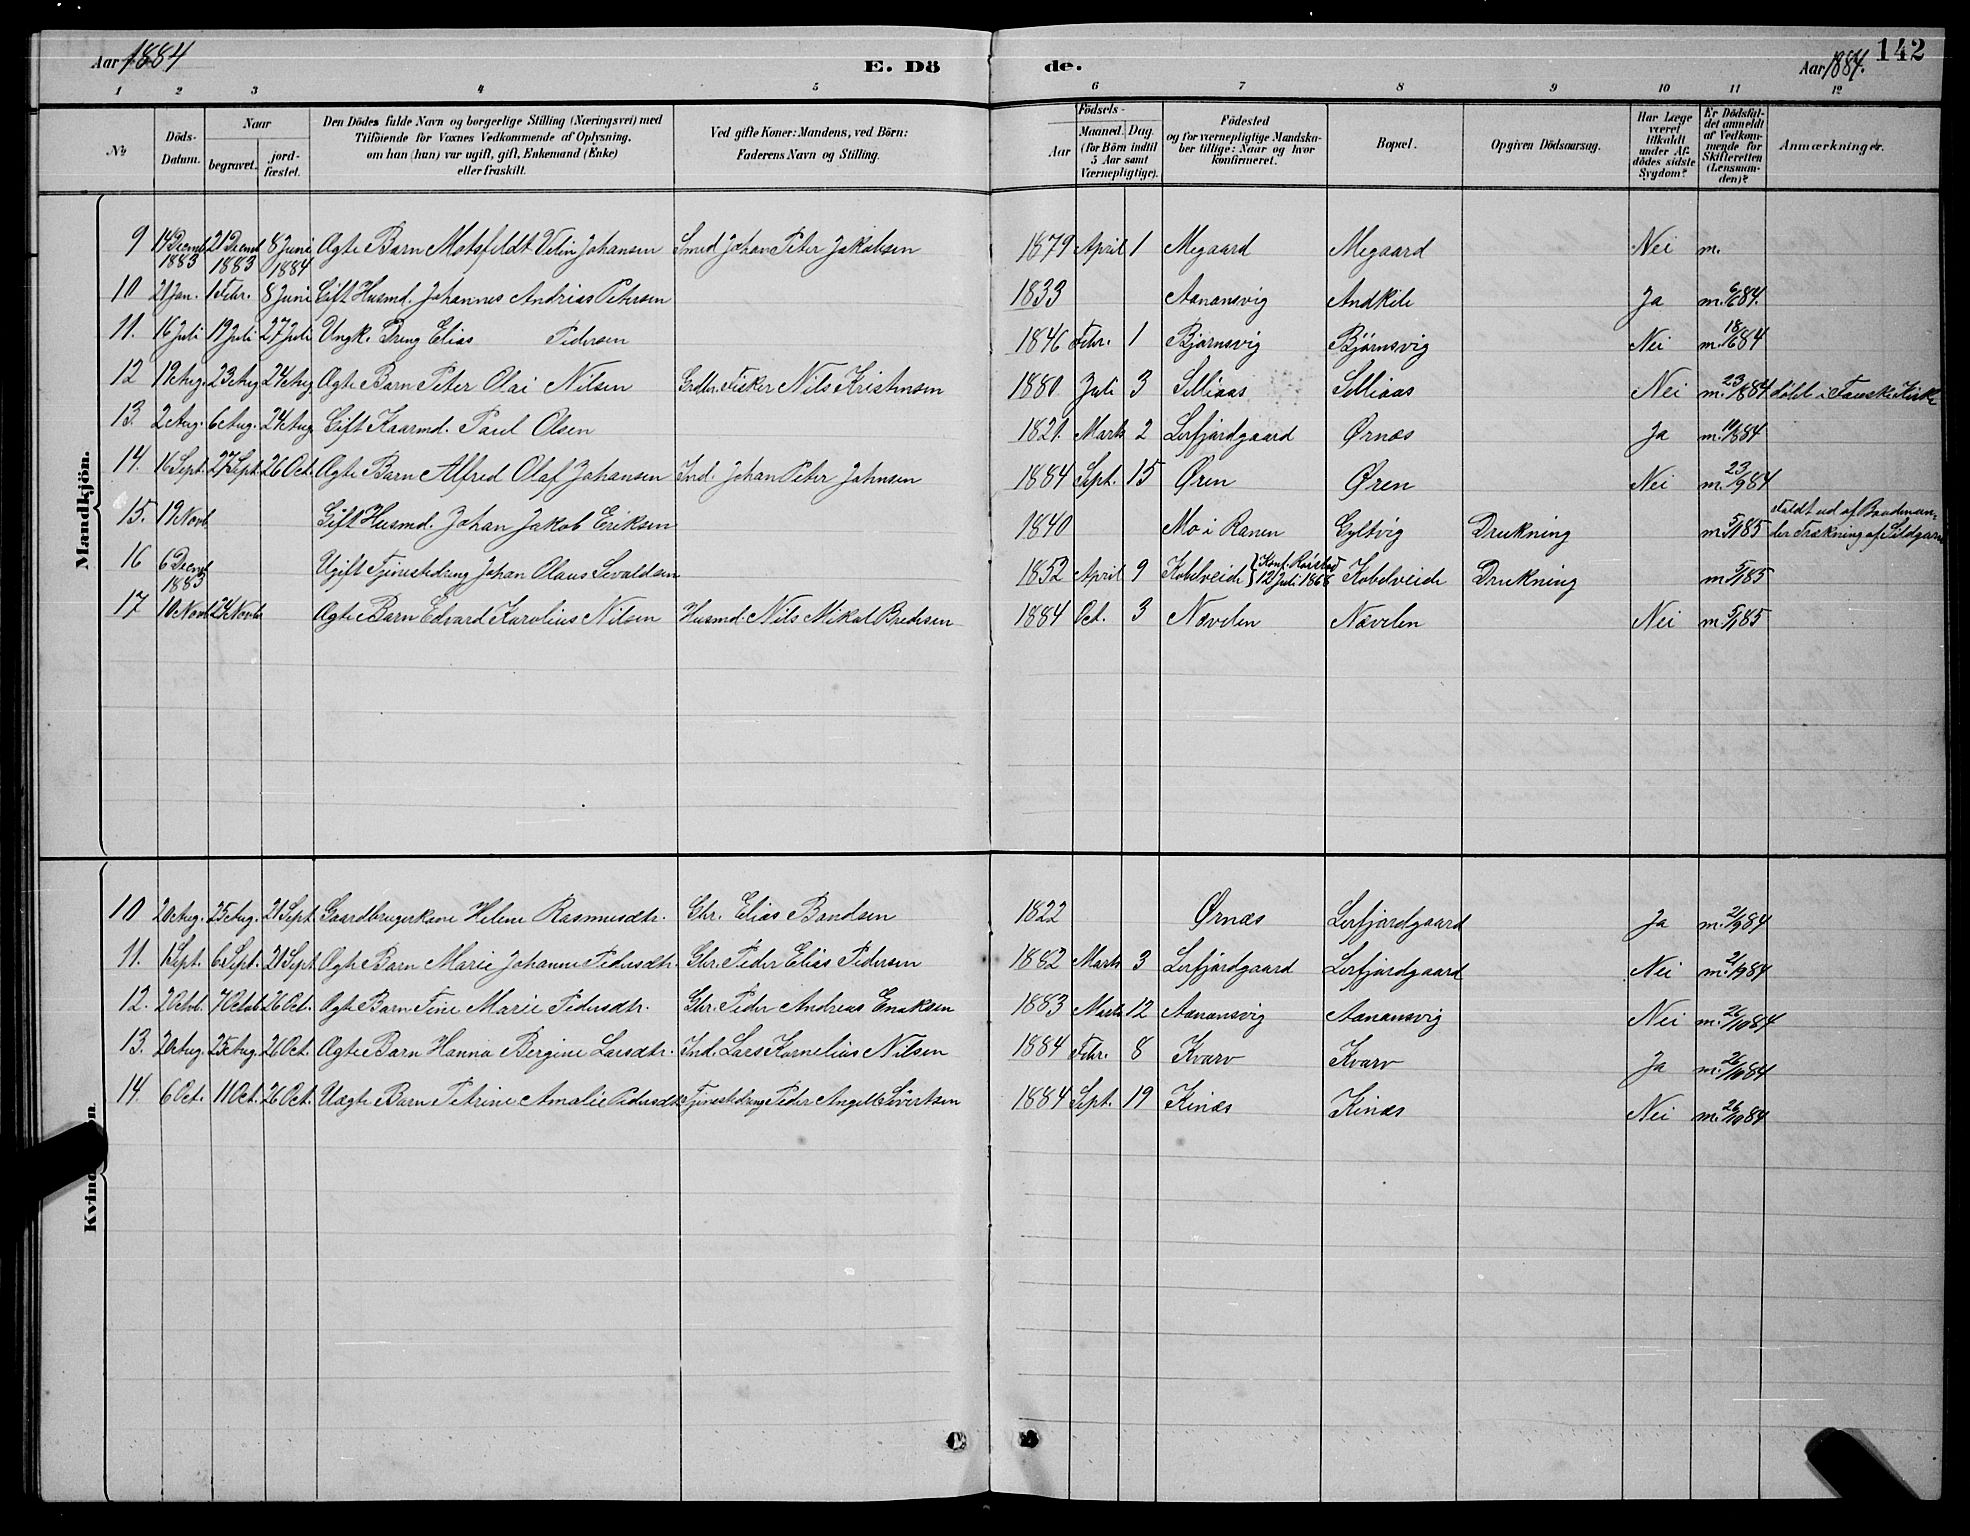 Aar 1884
E. Dö
de.
Aar 1884.
142
1 2 3 4 5 6 7 8 9 10 11 12
No
Döds-Datum.
Naar
begravet.
jord-fæstet.
Den Dödes fulde Navn og borgerlige Stilling (Næringsvei) med
Tilföiende for Voxnes Vedkommende af Oplysning,
om han (hun) var ugift, gift, Enkemand (Enke)
eller fraskilt.
Ved gifte Koner: Mandens, ved Börn:
Faderens Navn og Stilling.
Födsels-
Aar
Maaned. Dag.
(for Börn indtil
5 Aar samt
Værnepligtige).
Födested
og for værnepligtige Mandska-
ber tillige: Naar og hvor
konfirmeret.
Bopæl.
Opgiven Dödsaarsag.
Har Læge
været
tilkaldt
under Af-
dödes sidste
Sygdom?
Er Dödsfal-
det anmeldt
af Vedkom-
mende for
Skifteretten
(Lensman-
den)?
Anmærkninger.
Mandkjön.
9 14 Decmb 1883 21 Decmb 1883 8 Juni 1884 Ægte Barn Motsfeldt Johansen Smed Johan Peter Jakobsen 1879 April 1 Megaard Megaard Nei m.
10 21 Jan. 1 Febr. 8 Juni Gift Husmd. Johannes Andrias Petersen 1833 Aanansvig Andkile Ja m. 9/6 84.
11. 16 Juli 19 Juli 27 Juli Ungk. Dreng Elias Pedersen 1846 Febr. 1 Bjørnsvig Bjørnsvig Nei m. 84
12 19 Aug. 23 Aug 24 Aug Ægte Barn Peter Olai Nilsen Grdbr. Fisker Nils Kristensen 1880 Juli 3 Selliaas Selliaas Nei m. 23/ 84 i Fauske Kirke
13. 2 Aug. 6 Aug. 24 Aug Gift Kaarmd. Paul Olsen 1821. Marts 2 Lerfjordgaard Ørnæs Ja m. 84
14. 16 Sept. 27 Sept. 26 Oct. Ægte Barn Alfred Olaf Johansen Ind. Johan Peter Johnsen 1884 Sept. 15 Øren Øren Nei m. 23/9 84
15. 19 Novb Gift Husmd. Johan Jakob Eriksen 1840 Mo i Ranen Gyltvig Drukning m. 5/1 85 Faldt ud af Baaden un-
der Trækning af Sildgarn
16 6 Decmb 1883 Ugift Tjenestedreng Johan Olaus Sevaldsen 1852 April 9 Kobelveide Konf. Rørstad 12 Juli 1868 Kobelveide Drukning m. 5/1 85
17 16 Novb 24 Novb Ægte Barn Edvard Karolius Nilsen Husmd. Nils Mikal Bredesen 1884 Oct. 3 Nævelen Nævelen Nei m. 5/1 85
Kvind
10 20 Aug. 25 Aug. 21 Sept. Gaardbrugerkone Helene Rasmusdtr. Gbr. Elias Bendsen 1822 Ørnæs Lerfjordgaard Ja m. 2/9 84
11. 1 Sept. 6 Sept. 21 Sept. Ægte Barn Marie Johanne Pedersdtr. Gbr. Peder Elias Pedersen 1882 Marts 3 Lerfjordgaard Lerfjordgaard Nei m. 84
12. 2 Octob. 7 Octob 26 Oct. Ægte Barn Tine Marie Pedersdtr. Gbr. Peder Andreas Enoksen 1883 Marts 12 Aanansvig Aanansvig Nei m. 26/10 84
13. 20 Aug. 25 Aug. 26 Oct. Ægte Barn Hanna Bergine Larsdtr. Ind. Lars Kornelius Nilsen 1884 Febr. 8 Kvarv Kvarv Ja m. 26/10 84
14. 6 Oct. 11 Oct. 26 Oct. Uægte Barn Petrine Amalie Pedersdtr Tjenestedreng Peder Angell Sivertsen 1884 Sept. 19 Kinæs Kinæs Nei m. 26/10 84